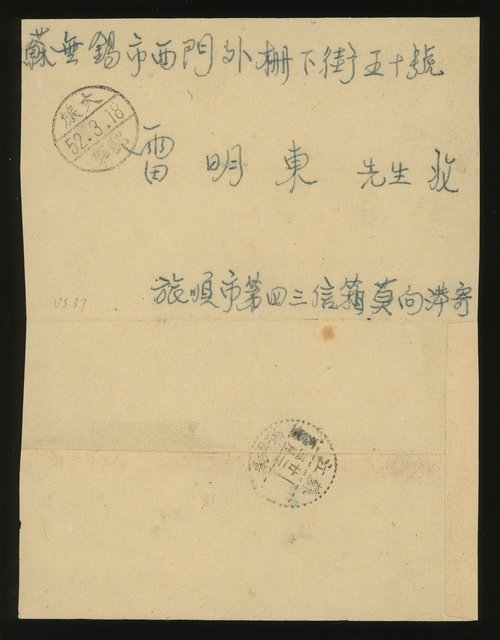 蘇無錫市西門外柵下街五十號
旅大
52.3.18
雷明東 先生
旅順市第四三信箱莫向洪寄
US 37